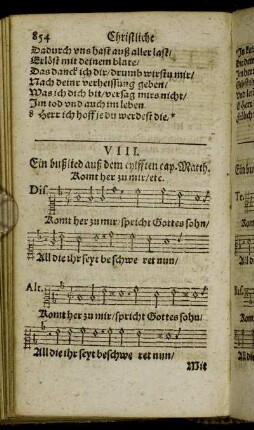 854 Christliche
Dadurch vns hast auß aller last/
Erlöst mit deinem blute/
Das danck ich dir/drumb wirstu mir/
Nach deinr verheissung geben/
Was ich dich bit/versag mirs nicht/
Im tod vnd auch im leben.
8 Herr ich hoff je du werdest die.*
VIII.
Ein bußlied auß dem eylfften cap. Matth.
Komt her zu mir/etc.
Dis.
Komt her zu mir/spricht Gottes sohn/
All die ihr seyt beschwe ret nun/
Alt.
Komt her zu mir/spricht Gottes sohn/
All die ihr seyt beschwe ret nun/
Mit